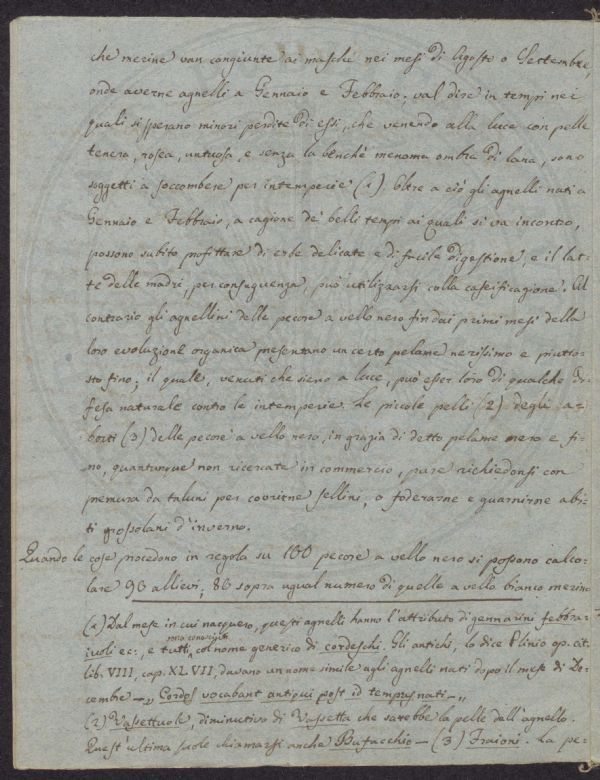 che merine van congiunte ai maschi nei mesi di Agosto o Settembre,
onde averne agnelli a Gennaio e Febbraio; val dire in tempi nei
quali si sperano minori perdite di essi, che venendo alla luce con pelle
tenera, rosea, untuosa, e senza la benchè menoma ombra di lana, sono
soggetti a soccombere per intemperie (1). Oltre a ciò gli agnelli nati a
Gennaio e Febbraio, a cagione de' belli tempi ai quali si va incontro,
possono subito profittare di erbe delicate e di facile digestione, e il lat-
te delle madri, per conseguenza, può utilizzarsi colla caseificazione. Al
contrario gli agnellini delle pecore a vello nero fin dai primi mesi della
loro evoluzione organica presentano un certo pelame nerissimo e piutto-
sto fino; il quale, venuti che sieno a luce, può esser loro di qualche di-
fesa naturale contro le intemperie. Le piccole pelli (2) degli a-
borti (3) delle pecore a vello nero, in grazia di detto pelame nero e fi-
no, quantunque non ricercate in commercio, pure richiedonsi con
premura da taluni per covrirne sellini, o foderarne e guarnirne abi-
ti grossolani d'inverno.
Quando le cose procedono in regola su 100 pecore a vello nero si possono calco-
lare 90 allievi; 80 sopra ugual numero di quelle a vello bianco merino
(1) Dal mese in cui nacquero, questi agnelli hanno l'attributo di gennarini febbra-
iuoli ec:, e tutti, col nome generico di cordeschi. Gli antichi, lo dice Plinio op. cit.
lib. VIII, cap. XLVII, davano un nome simile agli agnelli nati dopo il mese di De-
cembre —„ Cordos vocabant antiqui post id tempus natі —„
(2) Vassettuole, diminutivo di Vassetta che sarebbe la pelle dell'agnello.
Quest'ultima suole chiamarsi anche Bufacchio — (3) Fraioni. La pe-